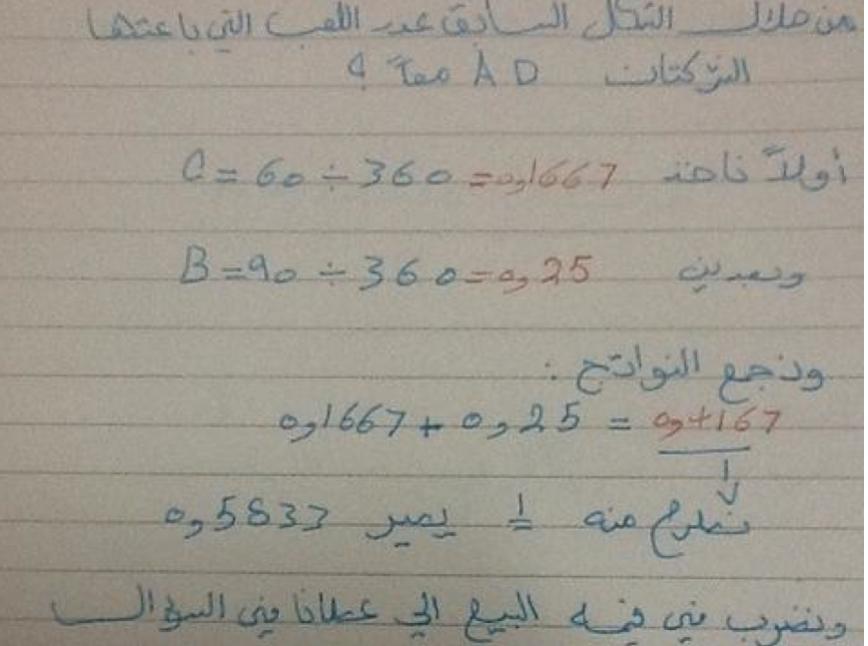 من خلال الشكل السابق عدد اللعب التي باعتها
الشركتان A D معاً ؟
أولاً ناخذ C = 60 ÷ 360 = 0,1667
وبعدين B = 90 ÷ 360 = 0,25
ونجمع النواتج :
0,1667 + 0,25 = 0,4167
نطرح منه 1 يصير 0,5833
ونضرب في قيمه البيع الي عطانا في السؤال